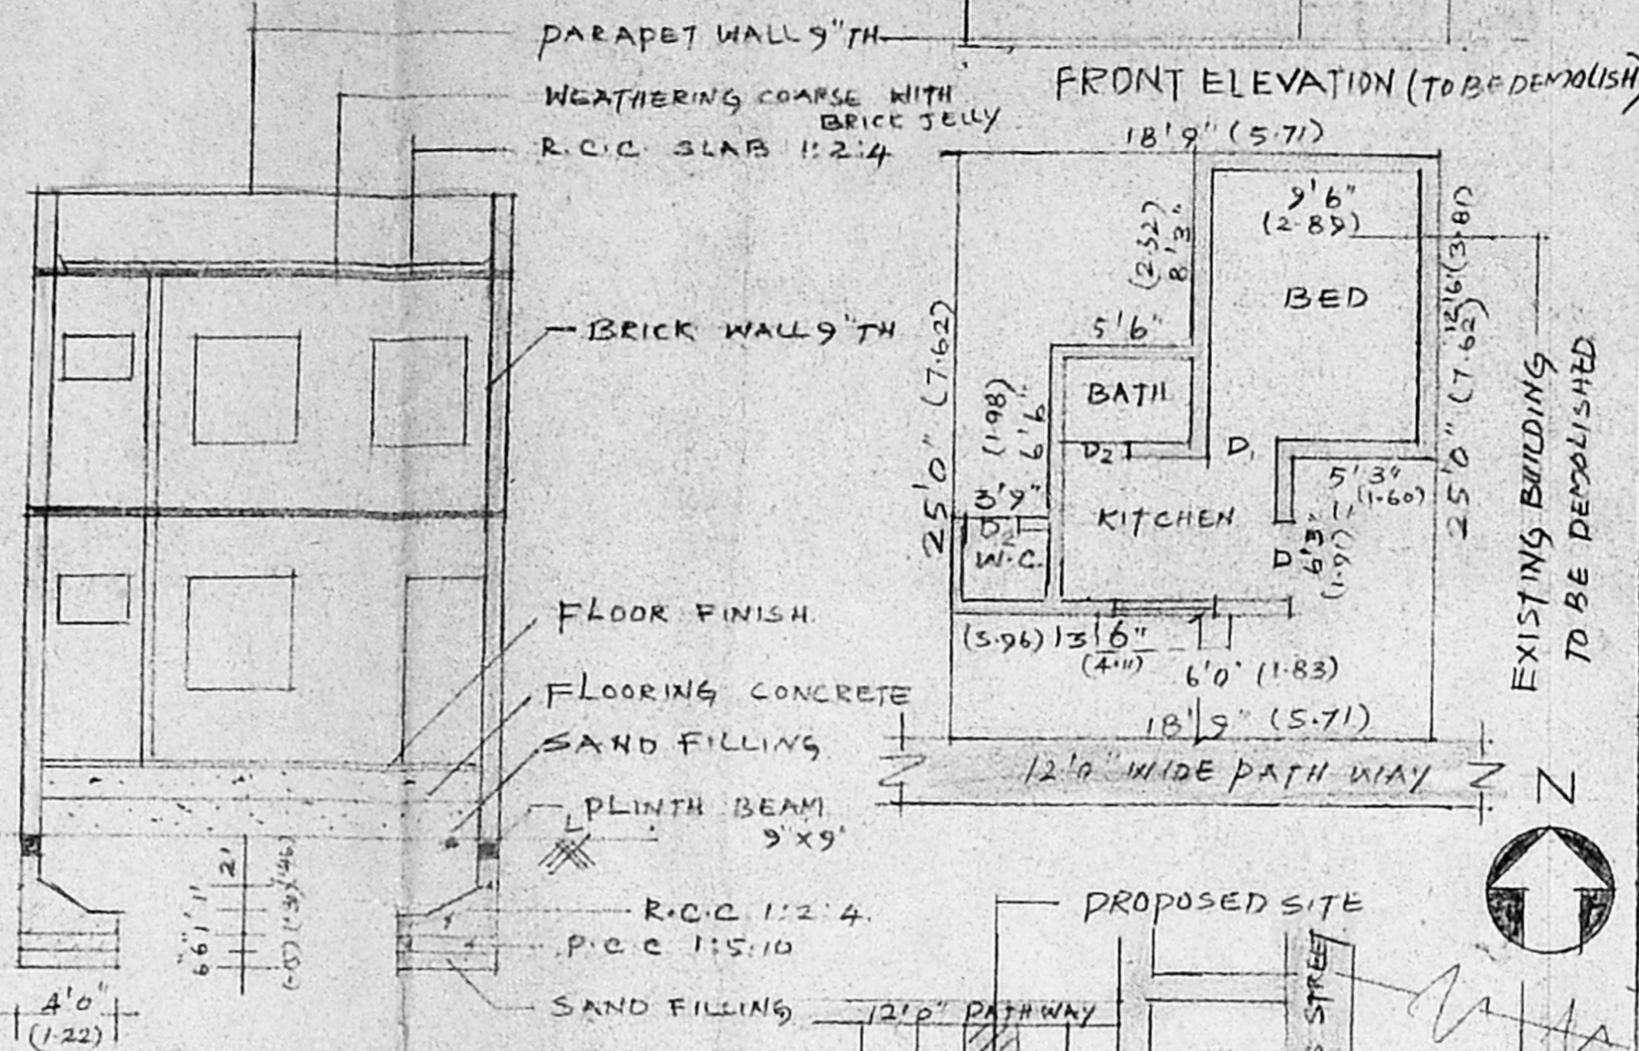 PARAPET WALL 9"TH
WEATHERING COARSE WITH
BRICK JELLY
R.C.C. SLAB 1:2:4
BRICK WALL 9"TH
FLOOR FINISH
FLOORING CONCRETE
SAND FILLING
PLINTH BEAM
9'X9'
R.C.C 1:2:4.
P.C.C 1:5:10
SAND FILLING
2'
1'
1'
6"
6"
4'0"
(1.22)
FRONT ELEVATION (TO BE DEMOLISH)
18'9" (5.71)
9'6"
(2.89)
BED
8'3"
(2.52)
12'6" (3.81)
25'0" (7.62)
25'0" (7.62)
5'6"
BATH
6'6"
(1.98)
D2
D1
5'3"
(1.60)
3'9"
D2
W.C.
KITCHEN
D
6'3"
(1.91)
(3.96) 13'6"
(4.11)
6'0" (1.83)
18'9" (5.71)
12'0" WIDE PATH WAY
EXISTING BUILDING
TO BE DEMOLISHED
N
PROPOSED SITE
12'0" PATHWAY
STREET